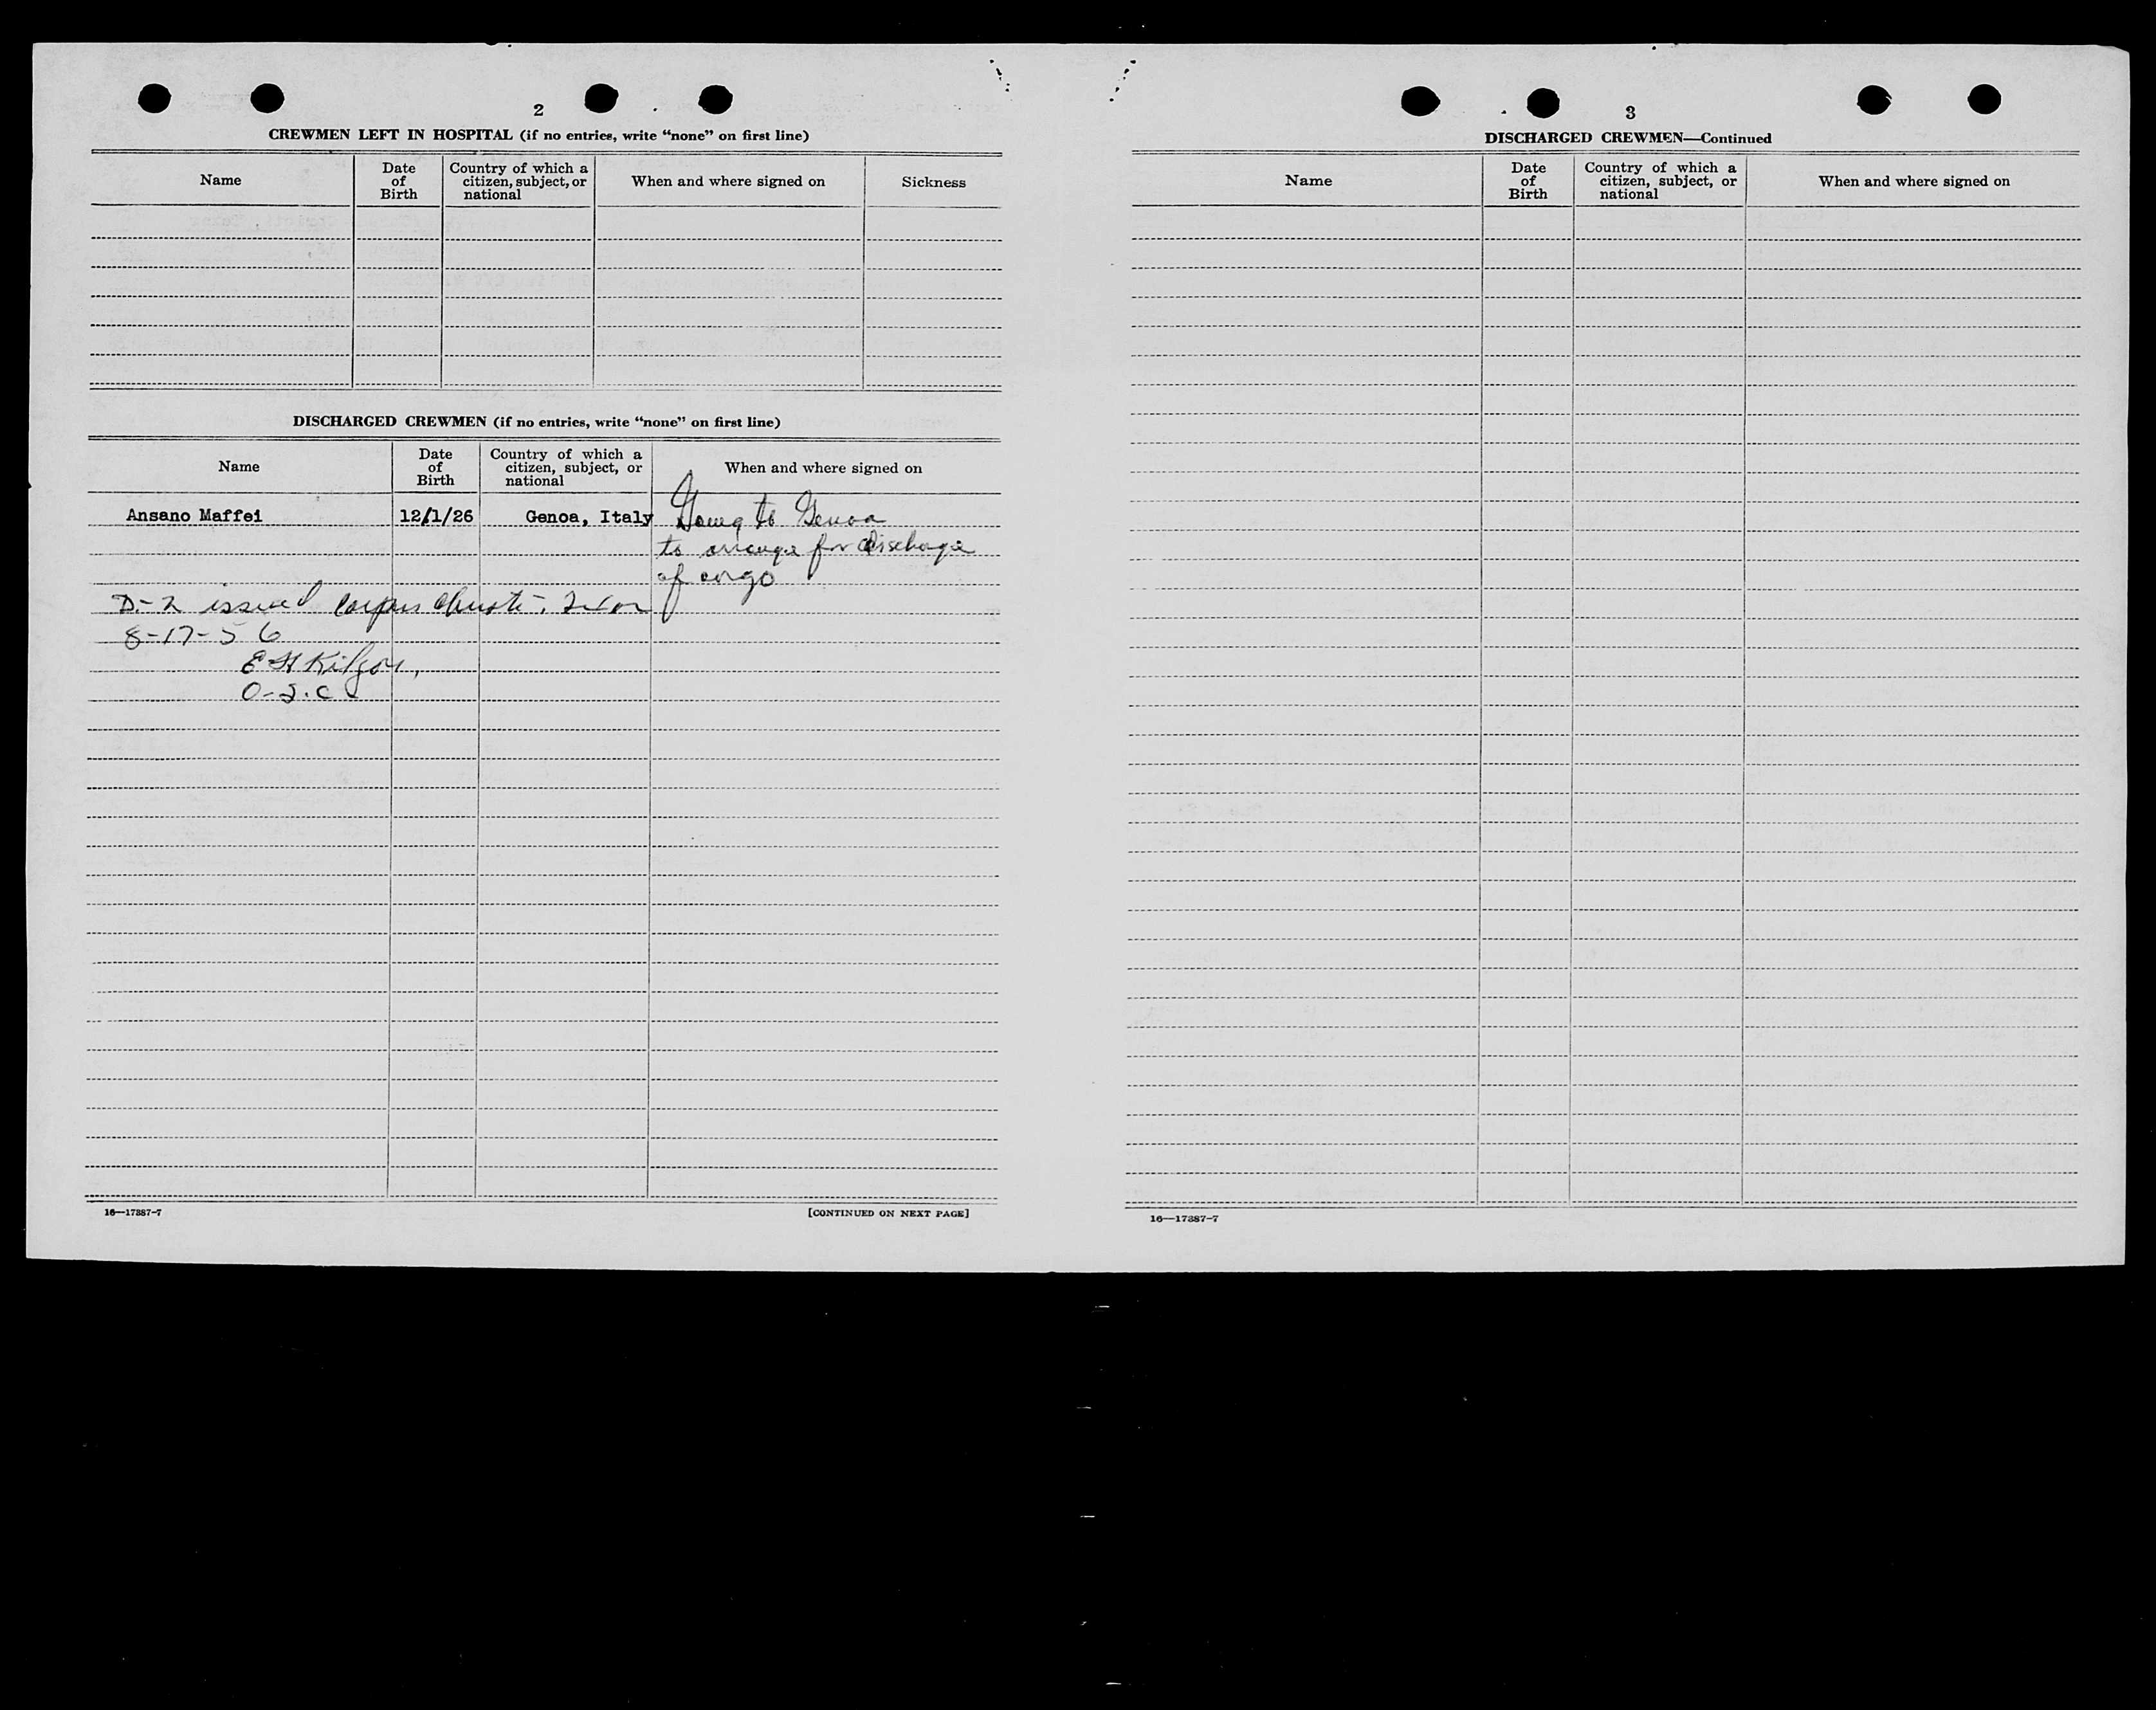 2
CREWMEN LEFT IN HOSPITAL (if no entries, write “none” on first line)
Name
Date of Birth
Country of which a citizen, subject, or national
When and where signed on
Sickness
DISCHARGED CREWMEN (if no entries, write “none” on first line)
Name
Date of Birth
Country of which a citizen, subject, or national
When and where signed on
Ansano Maffei 12/1/26 Genoa, Italy Going to Genoa
to arrange for discharge
of cargo
D-2 issued Corpus Christi,
8-17-56
E H Kilgore,
16—17387-7
[CONTINUED ON NEXT PAGE]
3
DISCHARGED CREWMEN—Continued
Name
Date of Birth
Country of which a citizen, subject, or national
When and where signed on
16—17387-7